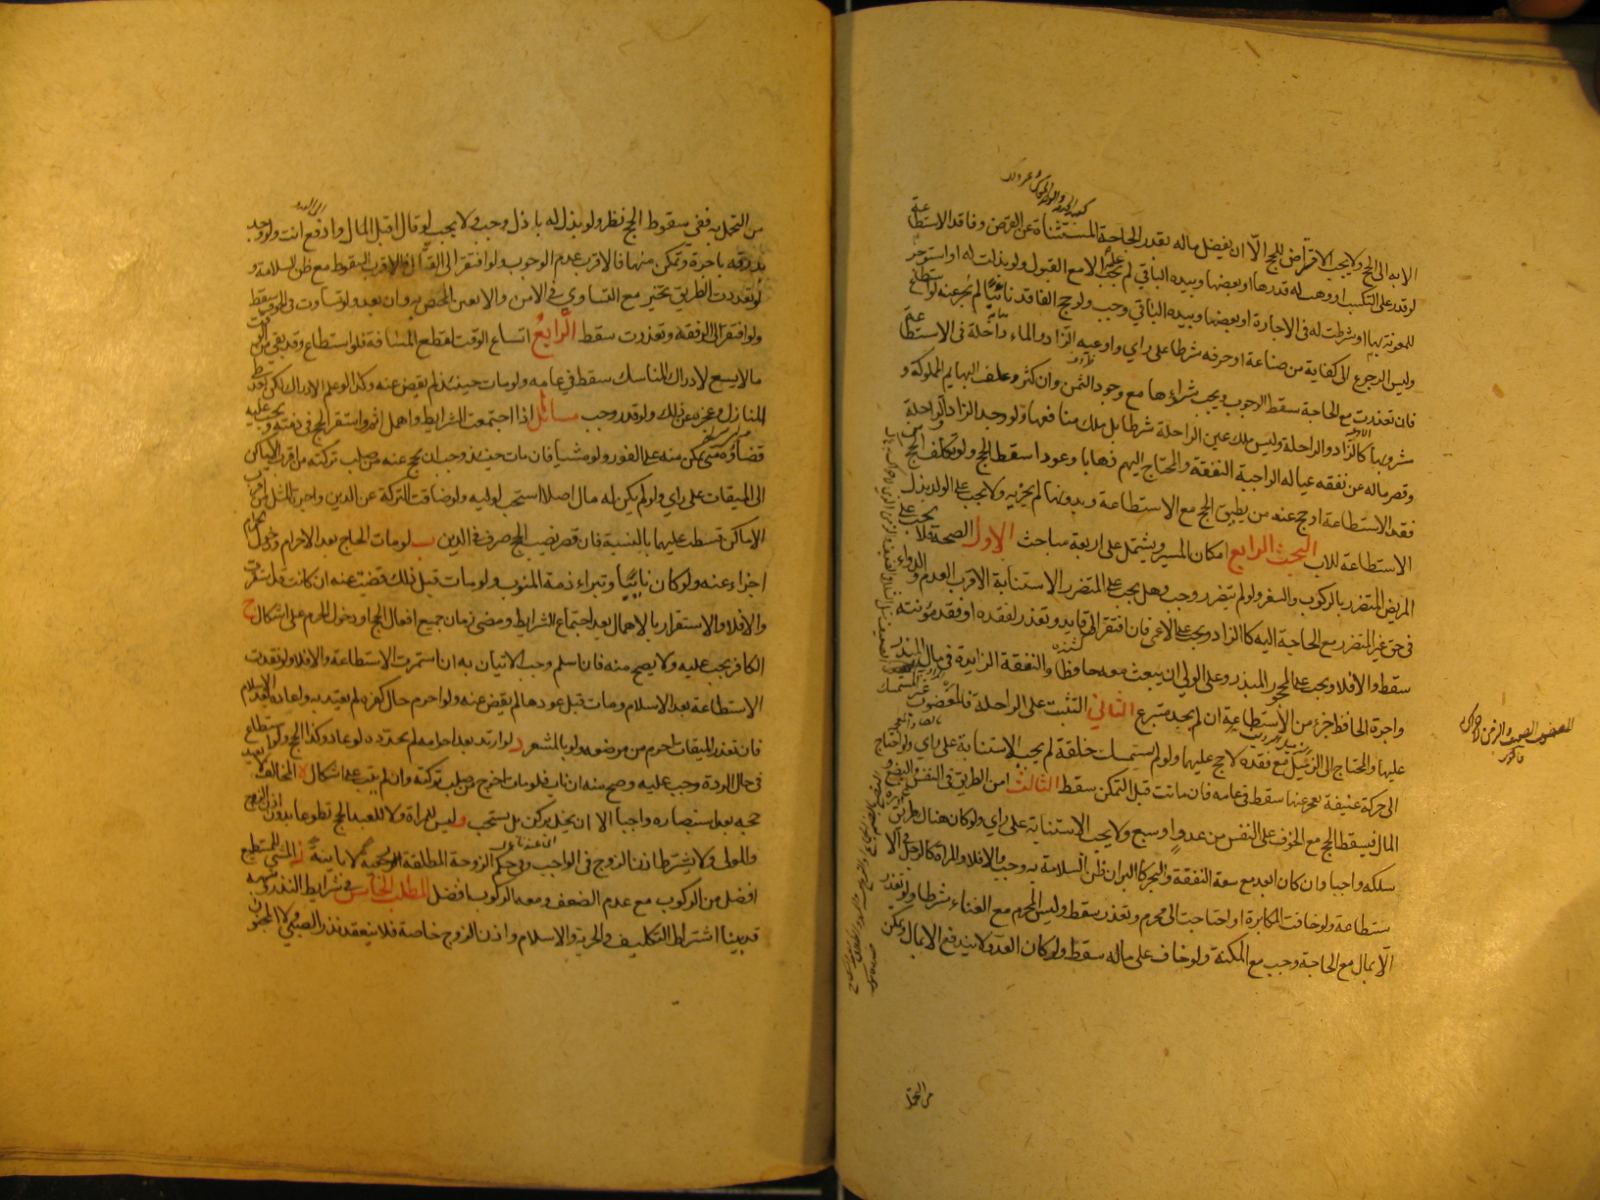 الا به الى الحج ولا يجب الاقتراض للحج الا ان يفضل ماله بقدر الحاجة المستثناة عن القرض وفاقد الاستطاعة
لو قدر على التكسب او وهب له قدرها او بعضها وبيده الباقي لم يجب الا مع القبول ولو بذلت له او استوجر
للمعونة بها او شرطت له في الاجارة او بعضها وبيده الباقي وجب ولو حج الفاقد نائبا لم يجز عنه لو استطاع
وليس الرجوع الى كفاية من صناعة او حرفه شرطا على راي واوعيه الزاد والماء داخلة في الاستطاعة
فان تعذرت مع الحاجة سقط الوجوب ويجب شراءها مع وجود الثمن وان كثر وعلف البهايم المملوكة و
مشروبها كالزاد والراحلة وليس ملك عين الراحلة شرطا بل ملك منافعها ولو وجد الزاد والراحلة
وقصر ماله عن نفقه عياله الواجبة النفقة والمحتاج اليهم ذهابا وعودا سقط الحج ولو تكلف الحج
فقد الاستطاعة او حج عنه من يطيق الحج مع الاستطاعة وبدونها لم يجزيه ولا يجب على الولد بذل
الاستطاعة للاب البحث الرابع امكان المسير ويشتمل على اربعة مباحث الاول الصحة فلا يجب على
المريض المتضرر بالركوب والسفر ولو لم يتضرر وجب وهل يجب على المتضرر الاستنابة الاقرب العدم والدواء
في حق غير المتضرر مع الحاجة اليه كالزاد ويجب على الاعمى فان افتقر الى قايد وتعذر لفقده او فقد مؤنته
سقط والا فلا ويجب على المحجور المبذر وعلى الولي ان يبعث معه حافظا والنفقة الزايدة في مال المبذر
واجرة الحافظ جزء من الاستطاعة ان لم يجد متبرع الثاني التثبت على الراحلة فالمعضوب غير المستمسك
عليها والمحتاج الى الزميل مع فقده لا حج عليهما ولو لم يستمسك خلقة لم يجب الاستنابة على راي ولو احتاج
الى حركة عنيفة يعجز عنها سقط في عامه فان مات قبل التمكن سقط الثالث امن الطريق في النفس والبضع و
المال فيسقط الحج مع الخوف على النفس من عدو او سبع ولا يجب الاستنابة على راي ولو كان هناك طريق
سلكه واجبا وان كان ابعد مع سعة النفقة والبحر كالبر ان ظن السلامة به وجب والا فلا والمراة كالرجل في الا
ستطاعة ولو خافت المكابرة او احتاجت الى محرم وتعذر سقط وليس المحرم مع الغناء شرطا ولو تعذر
الا بمال مع الحاجة وجب مع المكنة ولو خاف على ماله سقط ولو كان العدو لا يندفع الا بمال ويمكن
من التحمل
من التحمل به ففي سقوط الحج نظر ولو بذل له باذل وجب ولا يجب لو قال اقبل المال وادفع انت ولو وجد
بدرقه باجرة وتمكن منها فالاقرب عدم الوجوب ولو افتقر الى القتال فالاقرب السقوط مع ظن السلامة و
لو تعددت الطريق تخير مع التساوي في الامن والا تعين المختص به وان بعد ولو تساوت في الخوف سقط
ولو افتقر الى الرفقة وتعذرت سقط الرابع اتساع الوقت لقطع المسافة فلو استطاع وقد بقي من الوقت
ما لا يسع لادراك المناسك سقط في عامه ولو مات حينئذ لم يقض عنه وكذا لو علم الادراك لكن بعد طي
المنازل وعجزه عن ذلك ولو قدر وجب مسائل ا اذا اجتمعت الشرايط واهمل اثم واستقر الحج في ذمته ويجب عليه
قضاؤه متى تمكن منه على الفور ولو مشيا فان مات حينئذ وجب ان يحج عنه من صلب تركته من اقرب الاماكن
الى الميقات على راي ولو لم يكن له مال اصلا استحب لوليه ولو ضاقت التركة عن الدين واجرة المثل من اقرب
الاماكن قسطت عليهما بالنسبة فان قصر نصيب الحج صرف في الدين ب لو مات الحاج بعد الاحرام ودخول الحرم
اجزاء عنه ولو كان نائبا وتبراء ذمة المنوب ولو مات قبل ذلك قضيت عنه ان كانت قد استقرت
والا فلا والاستقرار بالاهمال بعد اجتماع الشرايط ومضي زمان جميع افعال الحج او دخول الحرم على اشكال ج
الكافر يجب عليه ولا يصح منه فان اسلم وجب الاتيان به ان استمرت الاستطاعة والا فلا ولو فقدت
الاستطاعة بعد الاسلام ومات قبل عودها لم يقض عنه ولو احرم حال كفره لم يعتد به واعاده بعد الاسلام
فان تعذر الميقات احرم من موضعه ولو بالمشعر د لو ارتد بعد احرامه لم يجدد لو عاد وكذا الحج ولو استطاع
في حال الردة وجب عليه وصح منه ان تاب فلو مات اخرج من صلب تركته وان لم يتب على اشكال ه المخالف لا يعيد
حجه بعد استبصاره واجبا الا ان يخل بركن بل يستحب و ليس للمراة ولا للعبد الحج تطوعا بدون اذن الزوج
والمولى ولا يشترط اذن الزوج في الواجب وفي حكم الزوجة المطلقة الرجعية لا باينة ز المشي للمستطيع
افضل من الركوب مع عدم الضعف ومعه الركوب افضل المطلب الخامس في شرايط النذر وشبهه
قد بينا اشتراط التكليف والحرية والاسلام واذن الزوج خاصة فلا ينعقد نذر الصبي ولا المجنون